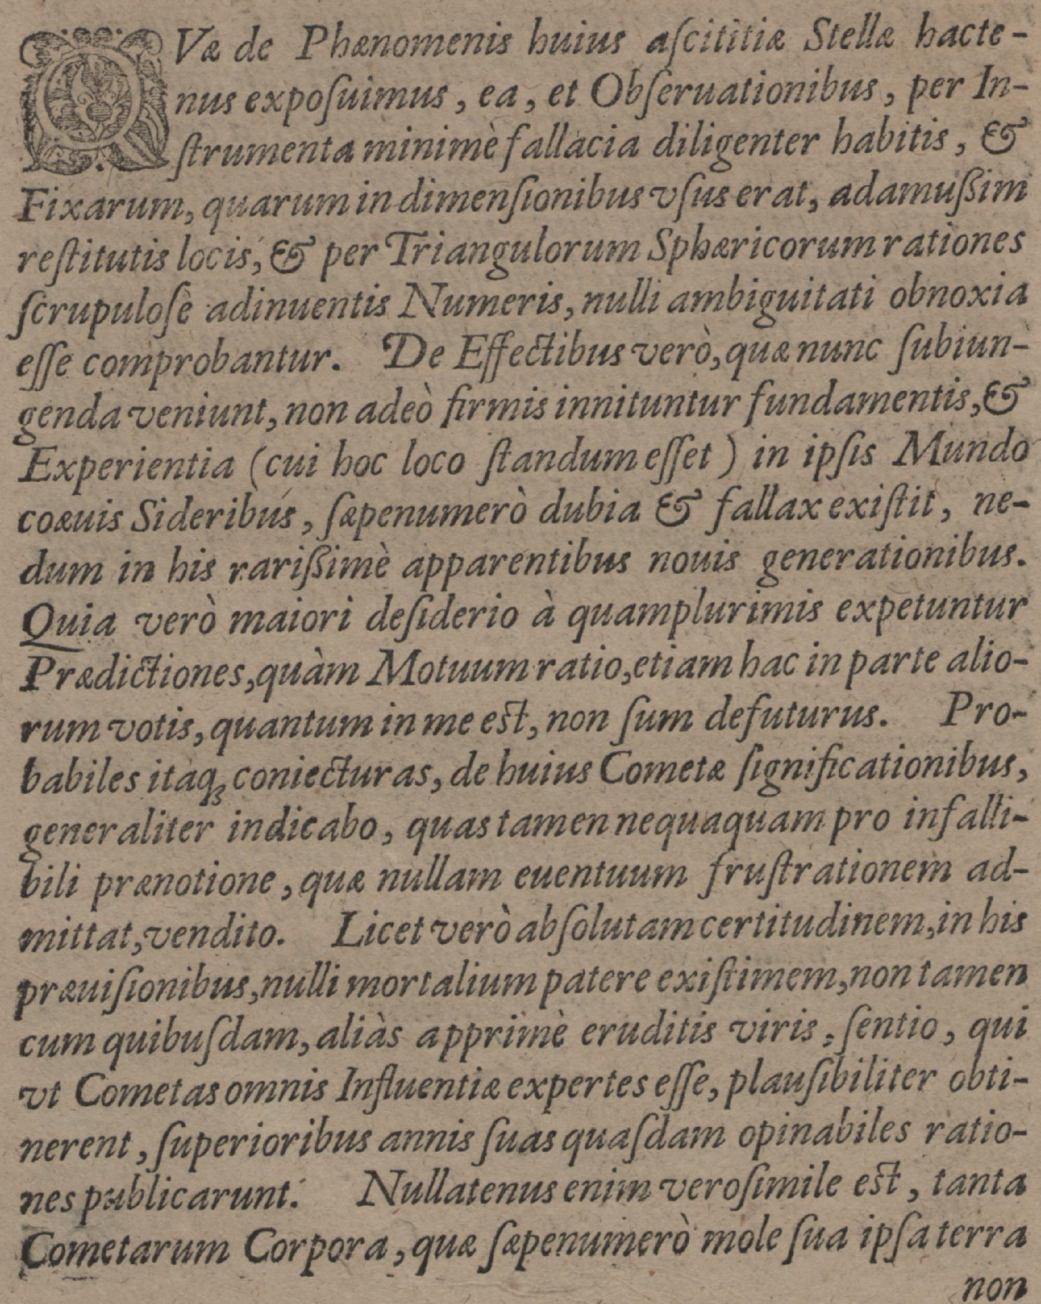 QVæ de Phænomenis huius aſcititiæ Stellæ hacte-
nus expoſuimus, ea, et Obſeruationibus, per In-
ſtrumenta minimè fallacia diligenter habitis, &
Fixarum, quarum in dimenſionibus vſus erat, adamußim
reſtitutis locis, & per Triangulorum Sphæricorum rationes
ſcrupuloſè adinuentis Numeris, nulli ambiguitati obnoxia
eſſe comprobantur. De Effectibus verò, quæ nunc ſubiun-
genda veniunt, non adeò firmis innituntur fundamentis, &
Experientia (cui hoc loco ſtandum eſſet) in ipſis Mundo
coæuis Sideribus, ſæpenumerò dubia & fallax exiſtit, ne-
dum in his rarißimè apparentibus nouis generationibus.
Quia verò maiori deſiderio à quamplurimis expetuntur
Prædictiones, quàm Motuum ratio, etiam hac in parte alio-
rum votis, quantum in me est, non ſum defuturus. Pro-
babiles itaq; coniecturas, de huius Cometæ ſignificationibus,
generaliter indicabo, quas tamen nequaquam pro infalli-
bili prænotione, quæ nullam euentuum fruſtrationem ad-
mittat, vendito. Licet verò abſolutam certitudinem, in his
præuiſionibus, nulli mortalium patere exiſtimem, non tamen
cum quibuſdam, aliàs apprimè eruditis viris, ſentio, qui
vt Cometas omnis Influentiæ expertes eſſe, plauſibiliter obti-
nerent, ſuperioribus annis ſuas quaſdam opinabiles ratio-
nes publicarunt. Nullatenus enim veroſimile est, tanta
Cometarum Corpora, quæ ſæpenumerò mole ſua ipſa terra
non